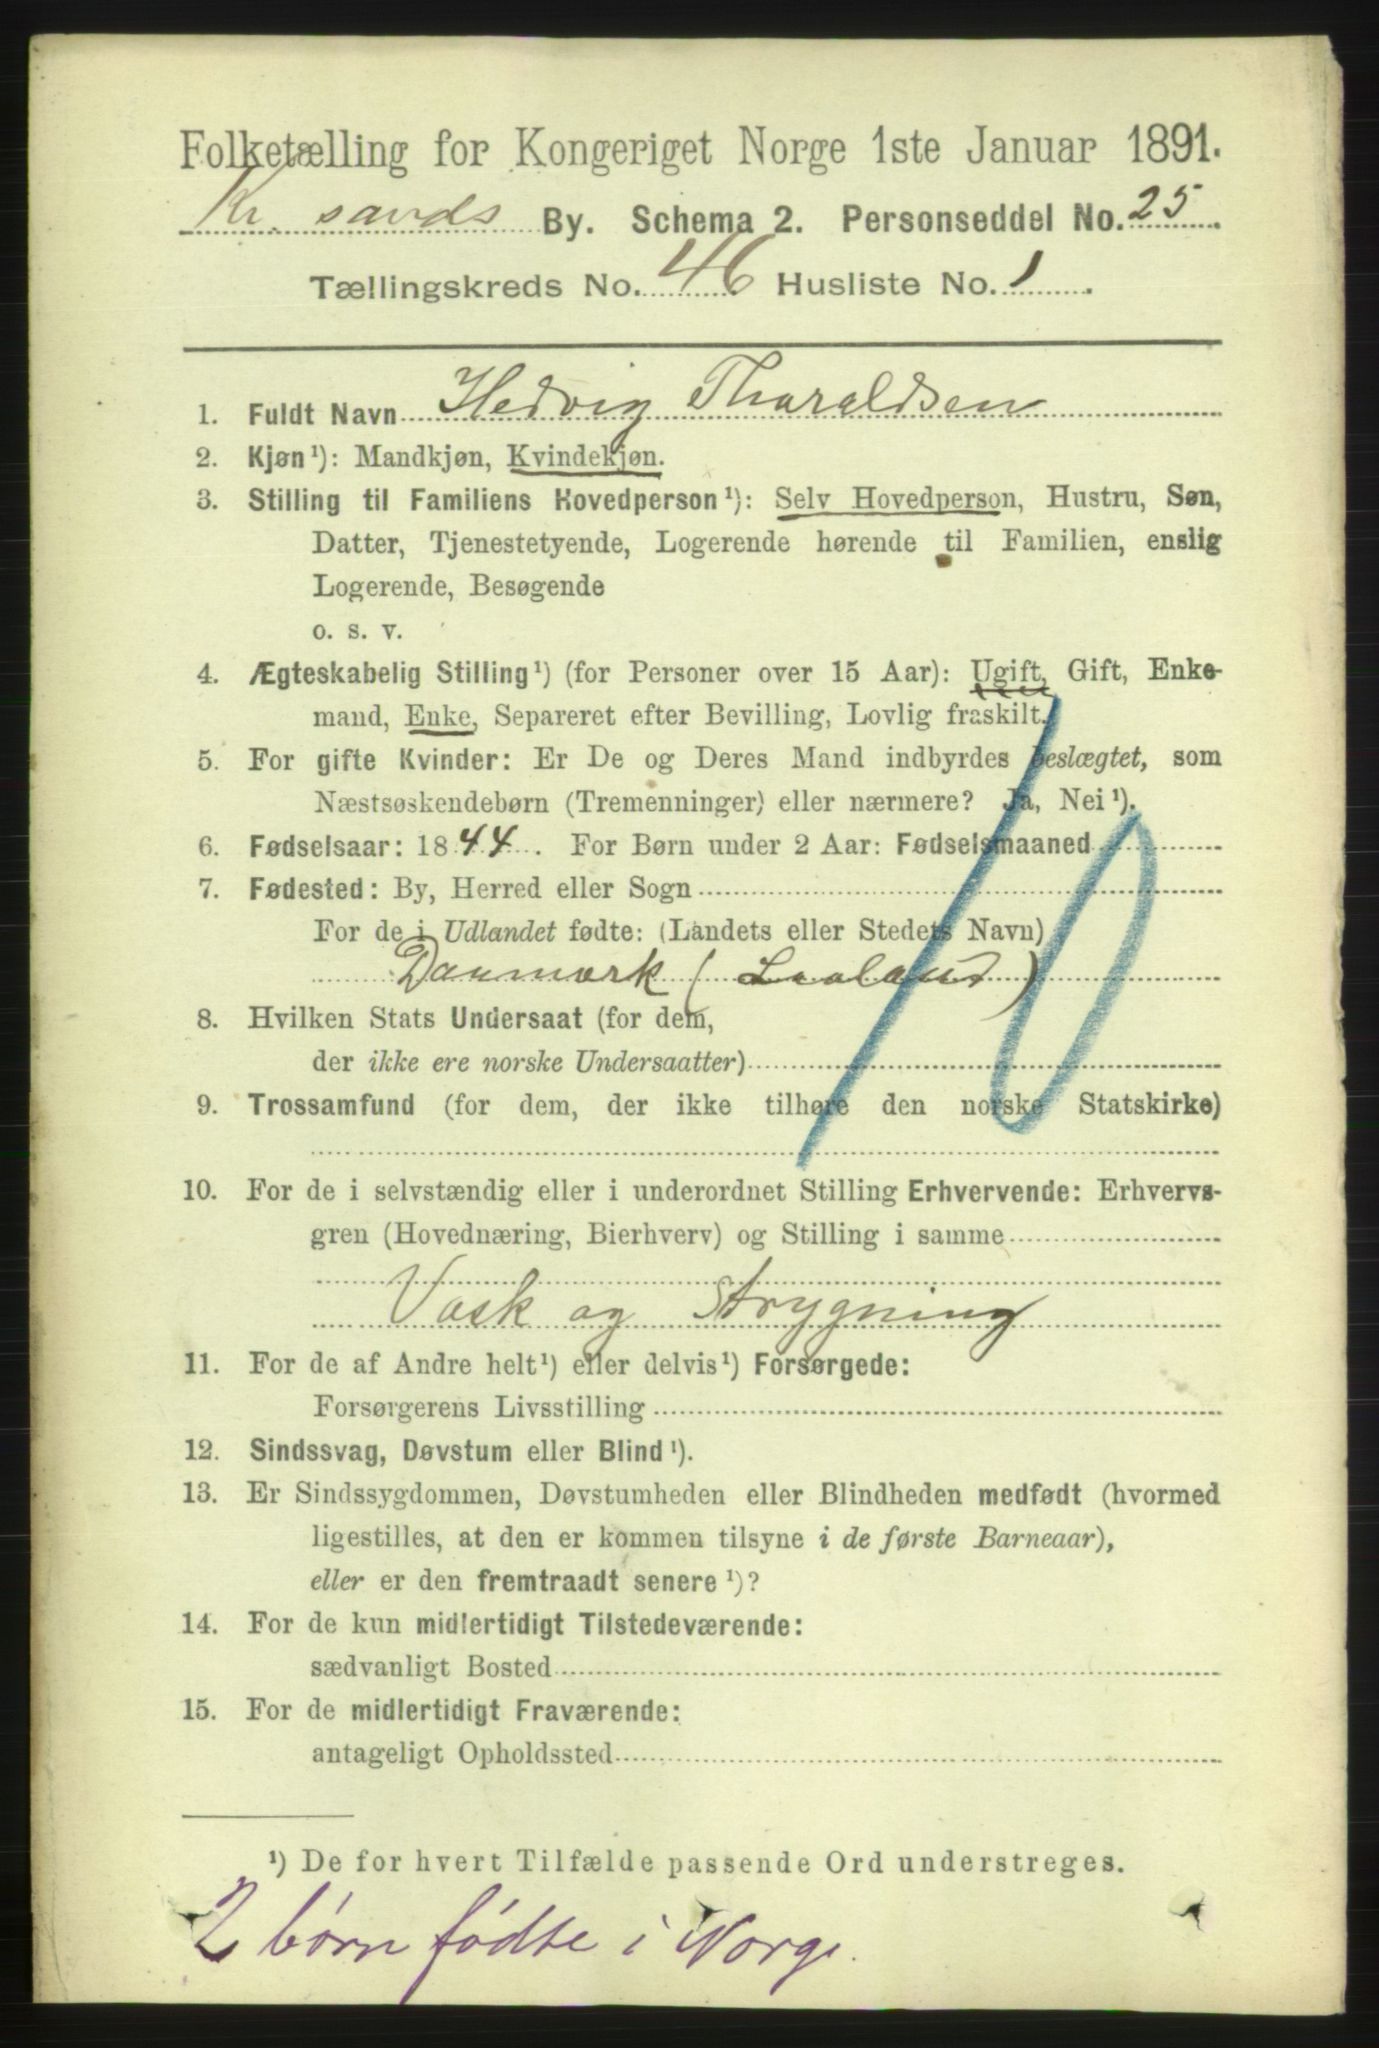 Folketælling for Kongeriget Norge 1ste Januar 1891.
Kr. sands By. Schema 2. Personseddel No. 25
Tællingskreds No. 46 Husliste No. 1
1. Fuldt Navn Hedvig Tharaldsen
2. Kjøn¹): Mandkjøn, Kvindekjøn.
3. Stilling til Familiens Hovedperson¹): Selv Hovedperson, Hustru, Søn,
Datter, Tjenestetyende, Logerende hørende til Familien, enslig
Logerende, Besøgende
o. s. v.
4. Ægteskabelig Stilling¹) (for Personer over 15 Aar): Ugift, Gift, Enke-
mand, Enke, Separeret efter Bevilling, Lovlig fraskilt.
5. For gifte Kvinder: Er De og Deres Mand indbyrdes beslægtet, som
Næstsøskendebørn (Tremenninger) eller nærmere? Ja, Nei¹).
6. Fødselsaar: 1844. For Børn under 2 Aar: Fødselsmaaned
7. Fødested: By, Herred eller Sogn
For de i Udlandet fødte: (Landets eller Stedets Navn)
Danmark (Laaland)
10
8. Hvilken Stats Undersaat (for dem,
der ikke ere norske Undersaatter)
9. Trossamfund (for dem, der ikke tilhøre den norske Statskirke)
10. For de i selvstændig eller i underordnet Stilling Erhvervende: Erhvervs-
gren (Hovednæring, Bierhverv) og Stilling i samme
Vask og Strygning
11. For de af Andre helt¹) eller delvis¹) Forsørgede:
Forsørgerens Livsstilling
12. Sindssvag, Døvstum eller Blind¹).
13. Er Sindssygdommen, Døvstumheden eller Blindheden medfødt (hvormed
ligestilles, at den er kommen tilsyne i de første Barneaar),
eller er den fremtraadt senere¹)?
14. For de kun midlertidigt Tilstedeværende:
sædvanligt Bosted
15. For de midlertidigt Fraværende:
antageligt Opholdssted
¹) De for hvert Tilfælde passende Ord understreges.
2 børn fødte i Norge.